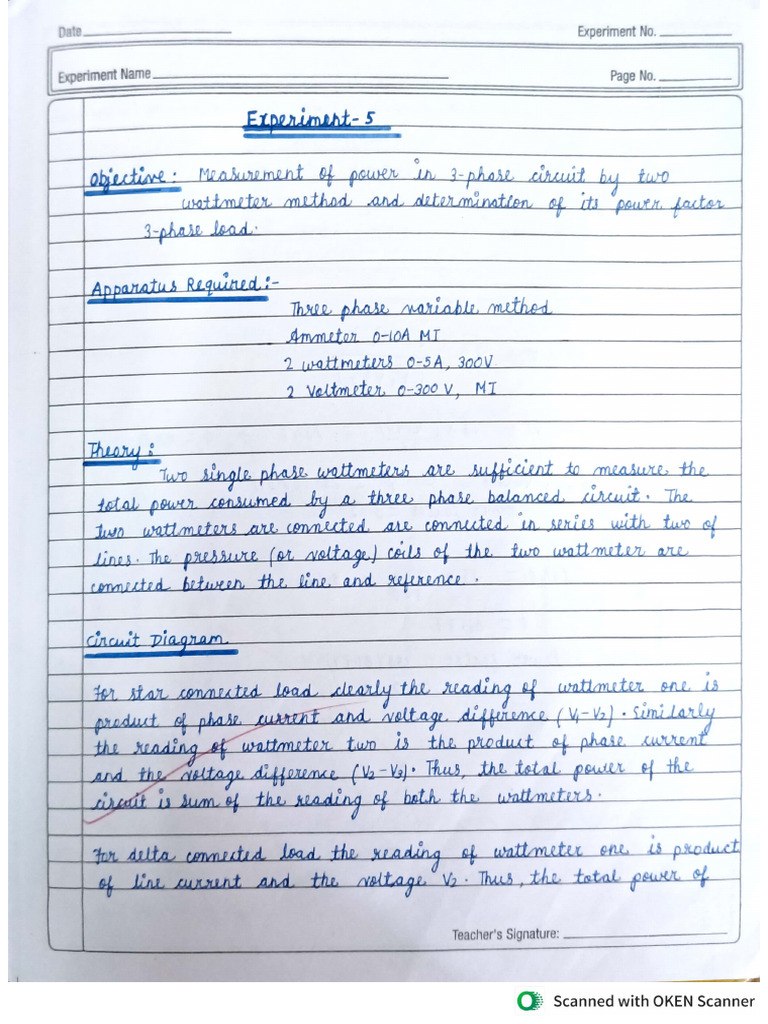 Date
Experiment No.
Experiment Name
Page No.
Experiment-5
Objective: Measurement of power in 3-phase circuit by two
wattmeter method and determination of its power factor
3-phase load.
Apparatus Required:-
Three phase variable method
Ammeter 0-10A MI
2 wattmeters 0-5A, 300V
2 Voltmeter 0-300 V, MI
Theory:
Two single phase wattmeters are sufficient to measure the
total power consumed by a three phase balanced circuit. The
two wattmeters are connected are connected in series with two of
lines. The pressure (or voltage) coils of the two wattmeter are
connected between the line and reference.
Circuit Diagram
For star connected load clearly the reading of wattmeter one is
product of phase current and voltage difference (V1-V2). Similarly
the reading of wattmeter two is the product of phase current
and the voltage difference (V2-V3). Thus, the total power of the
circuit is sum of the reading of both the wattmeters.
For delta connected load the reading of wattmeter one is product
of line current and the voltage V2. Thus, the total power of
Teacher's Signature:
Scanned with OKEN Scanner